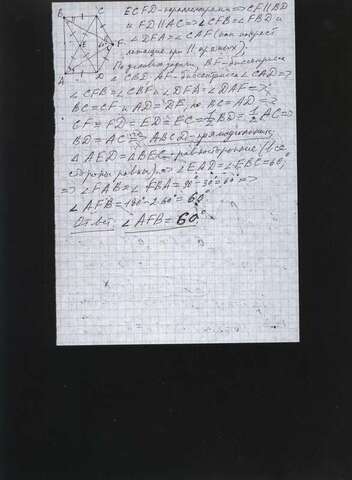 B C
ECFD - параллелограмм => CF || BD
и FD || AC => ∠CFB = ∠FBD и
∠DFA = ∠CAF (как накрест
лежащие при || прямых).
По условию задачи, BF - биссектриса
∠CBD, AF - биссектриса ∠CAD =>
∠CFB = ∠CBF и ∠DFA = ∠DAF =>
BC = CF и AD = DF, но BC = AD =>
CF = FD = ED = EC = 1/2 BD = 1/2 AC =>
BD = AC => ABCD - прямоугольник
△AED = △BEC - равносторонние (все
стороны равны) => ∠EAD = ∠EBC = 60°,
=> ∠FAB = ∠FBA = 90° - 30° = 60° =>
∠AFB = 180° - 2·60° = 60°
Ответ: ∠AFB = 60°
E F
A D